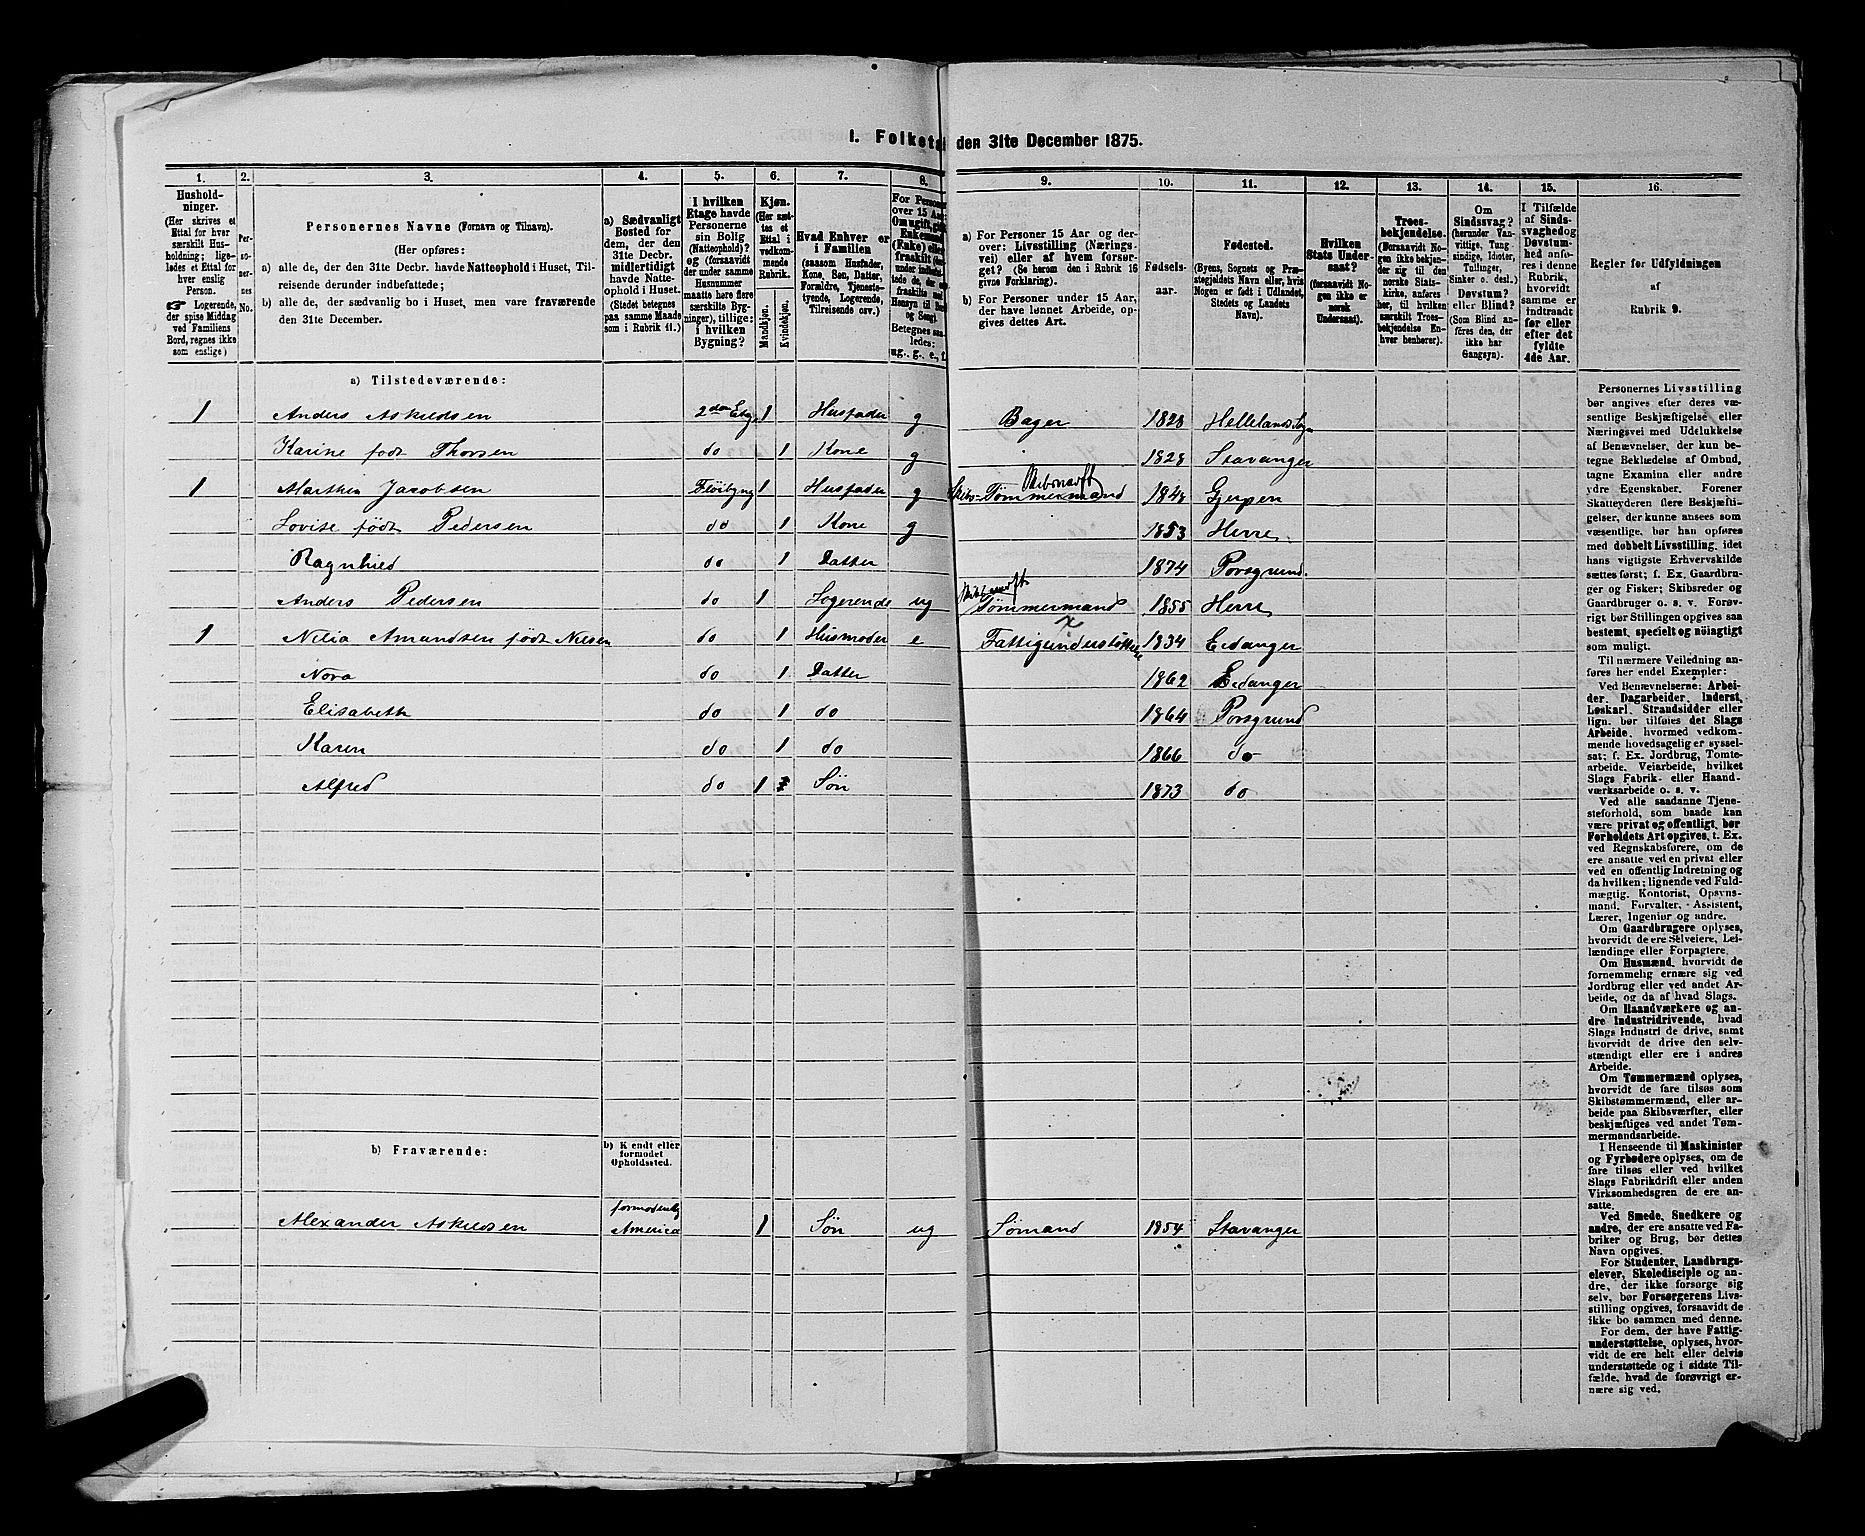 I. Folketæl den 31te December 1875.
1. 2. 3. 4. 5. 6. 7. 8. 9. 10. 11. 12. 13. 14. 15. 16.
Hushold-
ninger.
(Her skrives et
Ettal for hver
særskilt Hus-
holdning; lige-
ledes et Ettal for
hver enslig
Person.
☛ Logerende,
der spise Middag
ved Familiens
Bord, regnes ikke
som enslige)
Per-
so-
ner-
nes
No.
Personernes Navne (Fornavn og Tilnavn).
(Her opføres:
a) alle de, der den 31te Decbr. havde Natteophold i Huset, Til-
reisende derunder indbefattede;
b) alle de, der sædvanlig bo i Huset, men vare fraværende
den 31te December.
a) Sædvanligt
Bosted for
dem, der den
31te Decbr.
midlertidigt
havde Natte-
ophold i Huset.
(Stedet betegnes
paa samme Maade
som i Rubrik 11.)
I hvilken
Etage havde
Personerne
sin Bolig
(Natteophold)?
og (forsaavidt
der under samme
Husnummer
maatte høre flere
særskilts Byg-
ninger), tillige:
i hvilken
Bygning?
Kjøn.
(Her sæt-
tes et
Ettal i
vedkom-
mende
Rubrik.
Mandkjøn.
Kvindekjøn.
Hvad Enhver er
i Familien
(saasom Husfader,
Kone, Søn, Datter,
Forældre, Tjeneste-
tyende, Logerende,
Tilreisende osv.)
For Personer
over 15 Aar:
Om ugift, gift,
Enkemand
(Enke) eller
fraskilt
Betegnes saa-
ledes:
ug., g., e., f.
a) For Personer 15 Aar og der-
over: Livsstilling (Nærings-
vei) eller af hvem forsør-
get? (Se herom den i Rubrik 16
givne Forklaring).
b) For Personer under 15 Aar,
der have lønnet Arbeide, op-
gives dettes Art.
Fødsels-
aar.
Fødested.
(Byens, Sognets og Præ-
stegjeldets Navn eller, hvis
Nogen er født i Udlandet,
Stedets og Landets
Navn).
Hvilken
Stats Under-
saat?
(forsaavidt No-
gen ikke er
norsk
Undersaat).
Troes-
bekjendelse.
(Forsaavidt No-
gen ikke bekjen-
der sig til den
norske Stats-
kirke, anføres
her, til hvilken
særskilt Troes-
bekjendelse En-
hver henhører).
Om
Sindssvag?
(herunder Van-
vittige, Tung
sindige, Idioter,
Tullinger,
Sinker o. desl.)
Døvstum?
eller Blind?
(Som Blind an-
føres den, der
ikke har
Gangsyn).
I Tilfælde
af Sinds-
svaghed og
Døvstum-
hed anfø-
res i denne
Rubrik,
hvorvidt
samme er
indtraadt
før eller
efter det
fyldte
4de Aar.
Regler for Udfyldningen
af
Rubrik 9.
a) Tilstedeværende:
1 Anders Askildsen 2den Etg. 1 Husfader g Bager 1828 Hellelands Sogn
Karine født Thorsen do 1 Kone g 1828 Stavanger
1 Marthin Jacobsen Fløibyng 1 Husfader g Skibs-Tømmermand Skibsværft 1848 Gjerpen
Lovise født Pedersen do 1 Kone g 1853 Herre
Ragnhild do 1 Datter 1874 Porsgrund.
Anders Pedersen do 1 Logerende ug Tømmermand 1855 Herre
1 Nilia Amandsen født Nilsen do 1 Husmoder e Fattigunderstøttelse x 1834 Eidanger
Nora do 1 Datter 1862 Eidanger
Elisabeth do 1 do 1864 Porsgrund
Karen do 1 do 1866 do
Alfred do 1 Søn 1873 do
b) Fraværende:
b) Kjendt eller
formodet
Opholdssted.
Alexander Askildsen formodentlig America 1 Søn ug Sømand 1854 Stavanger
Personernes Livsstilling
bør angives efter deres væ-
sentlige Beskjæftigelse eller
Næringsvei med Udelukkelse
af Benævnelser, der kun be-
tegne Beklædelse af Ombud,
tagne Examina eller andre
ydre Egenskaber. Forener
Skatteyderen flere Beskjæfti-
gelser, der kunne ansees som
væsentlige, bør han opføres
med dobbelt Livsstilling, idet
hans vigtigste Erhvervskilde
sættes først; f. Ex. Gaardbru-
ger og Fisker; Skibsreder og
Gaardbruger o. s. v. Forøv-
rigt bør Stillingen opgives saa
bestemt, specielt og nøiagtigt
som muligt.
Til nærmere Veiledning an-
føres her endel Exempler:
Ved Benævnelserne: Arbei-
der, Dagarbeider, Inderst,
Løskarl, Strandsidder eller
lign. bør tilføies det Slags
Arbeide, hvormed vedkom-
mende hovedsagelig er syssel-
sat; f. Ex. Jordbrug, Tomte-
arbeide, Veiarbeide, hvilket
Slags Fabrik- eller Haand-
værksarbeide o. s. v.
Ved alle saadanne Tjene-
steforhold, som baade kan
være privat og offentligt, bør
Forholdets Art opgives, t. Ex.
ved Regnskabsførere, om de
ere ansatte ved en privat eller
ved en offentlig Indretning og
da hvilken; lignende ved Fuld-
mægtig, Kontorist, Opsyns-
mand, Forvalter, Assistent,
Lærer, Ingeniør og andre.
Om Gaardbrugere oplyses,
hvorvidt de ere Selveiere, Lei-
lændinge eller Forpagtere.
Om Husmænd, hvorvidt de
fornemmelig ernære sig ved
Jordbrug eller ved andet Ar-
beide, og da af hvad Slags.
Om Haandværkere og an-
dre Industridrivende, hvad
Slags Industri de drive, samt
hvorvidt de drive den selv-
stændigt eller ere i andres
Arbeide.
Om Tømmermænd oplyses,
hvorvidt de fare tilsøs som
Skibstømmermænd, eller ar-
beide paa Skibsværfter, eller
beskjæftiges ved andet Tøm-
mermandsarbeide.
I Henseende til Maskinister
og Fyrbødere oplyses, om de
fare tilsøs eller ved hvilket
Slags Fabrikdrift eller anden
Virksomhedsgren de ere an-
satte.
Ved Smede, Snedkere og
andre, der ere ansatte ved Fa-
briker og Brug, bør dettes
Navn opgives.
For Studenter, Landbrugs-
elever, Skoledisciple og an-
dre, der ikke forsørge sig
selv, bør Forsørgerens Livs-
stilling opgives, forsaavidt de
ikke bo sammen med denne.
For dem, der have Fattig-
understøttelse, oplyses, hvor-
vidt de ere helt eller delvis
understøttede og i sidste Til-
fælde, hvad de forøvrigt er-
nære sig ved.